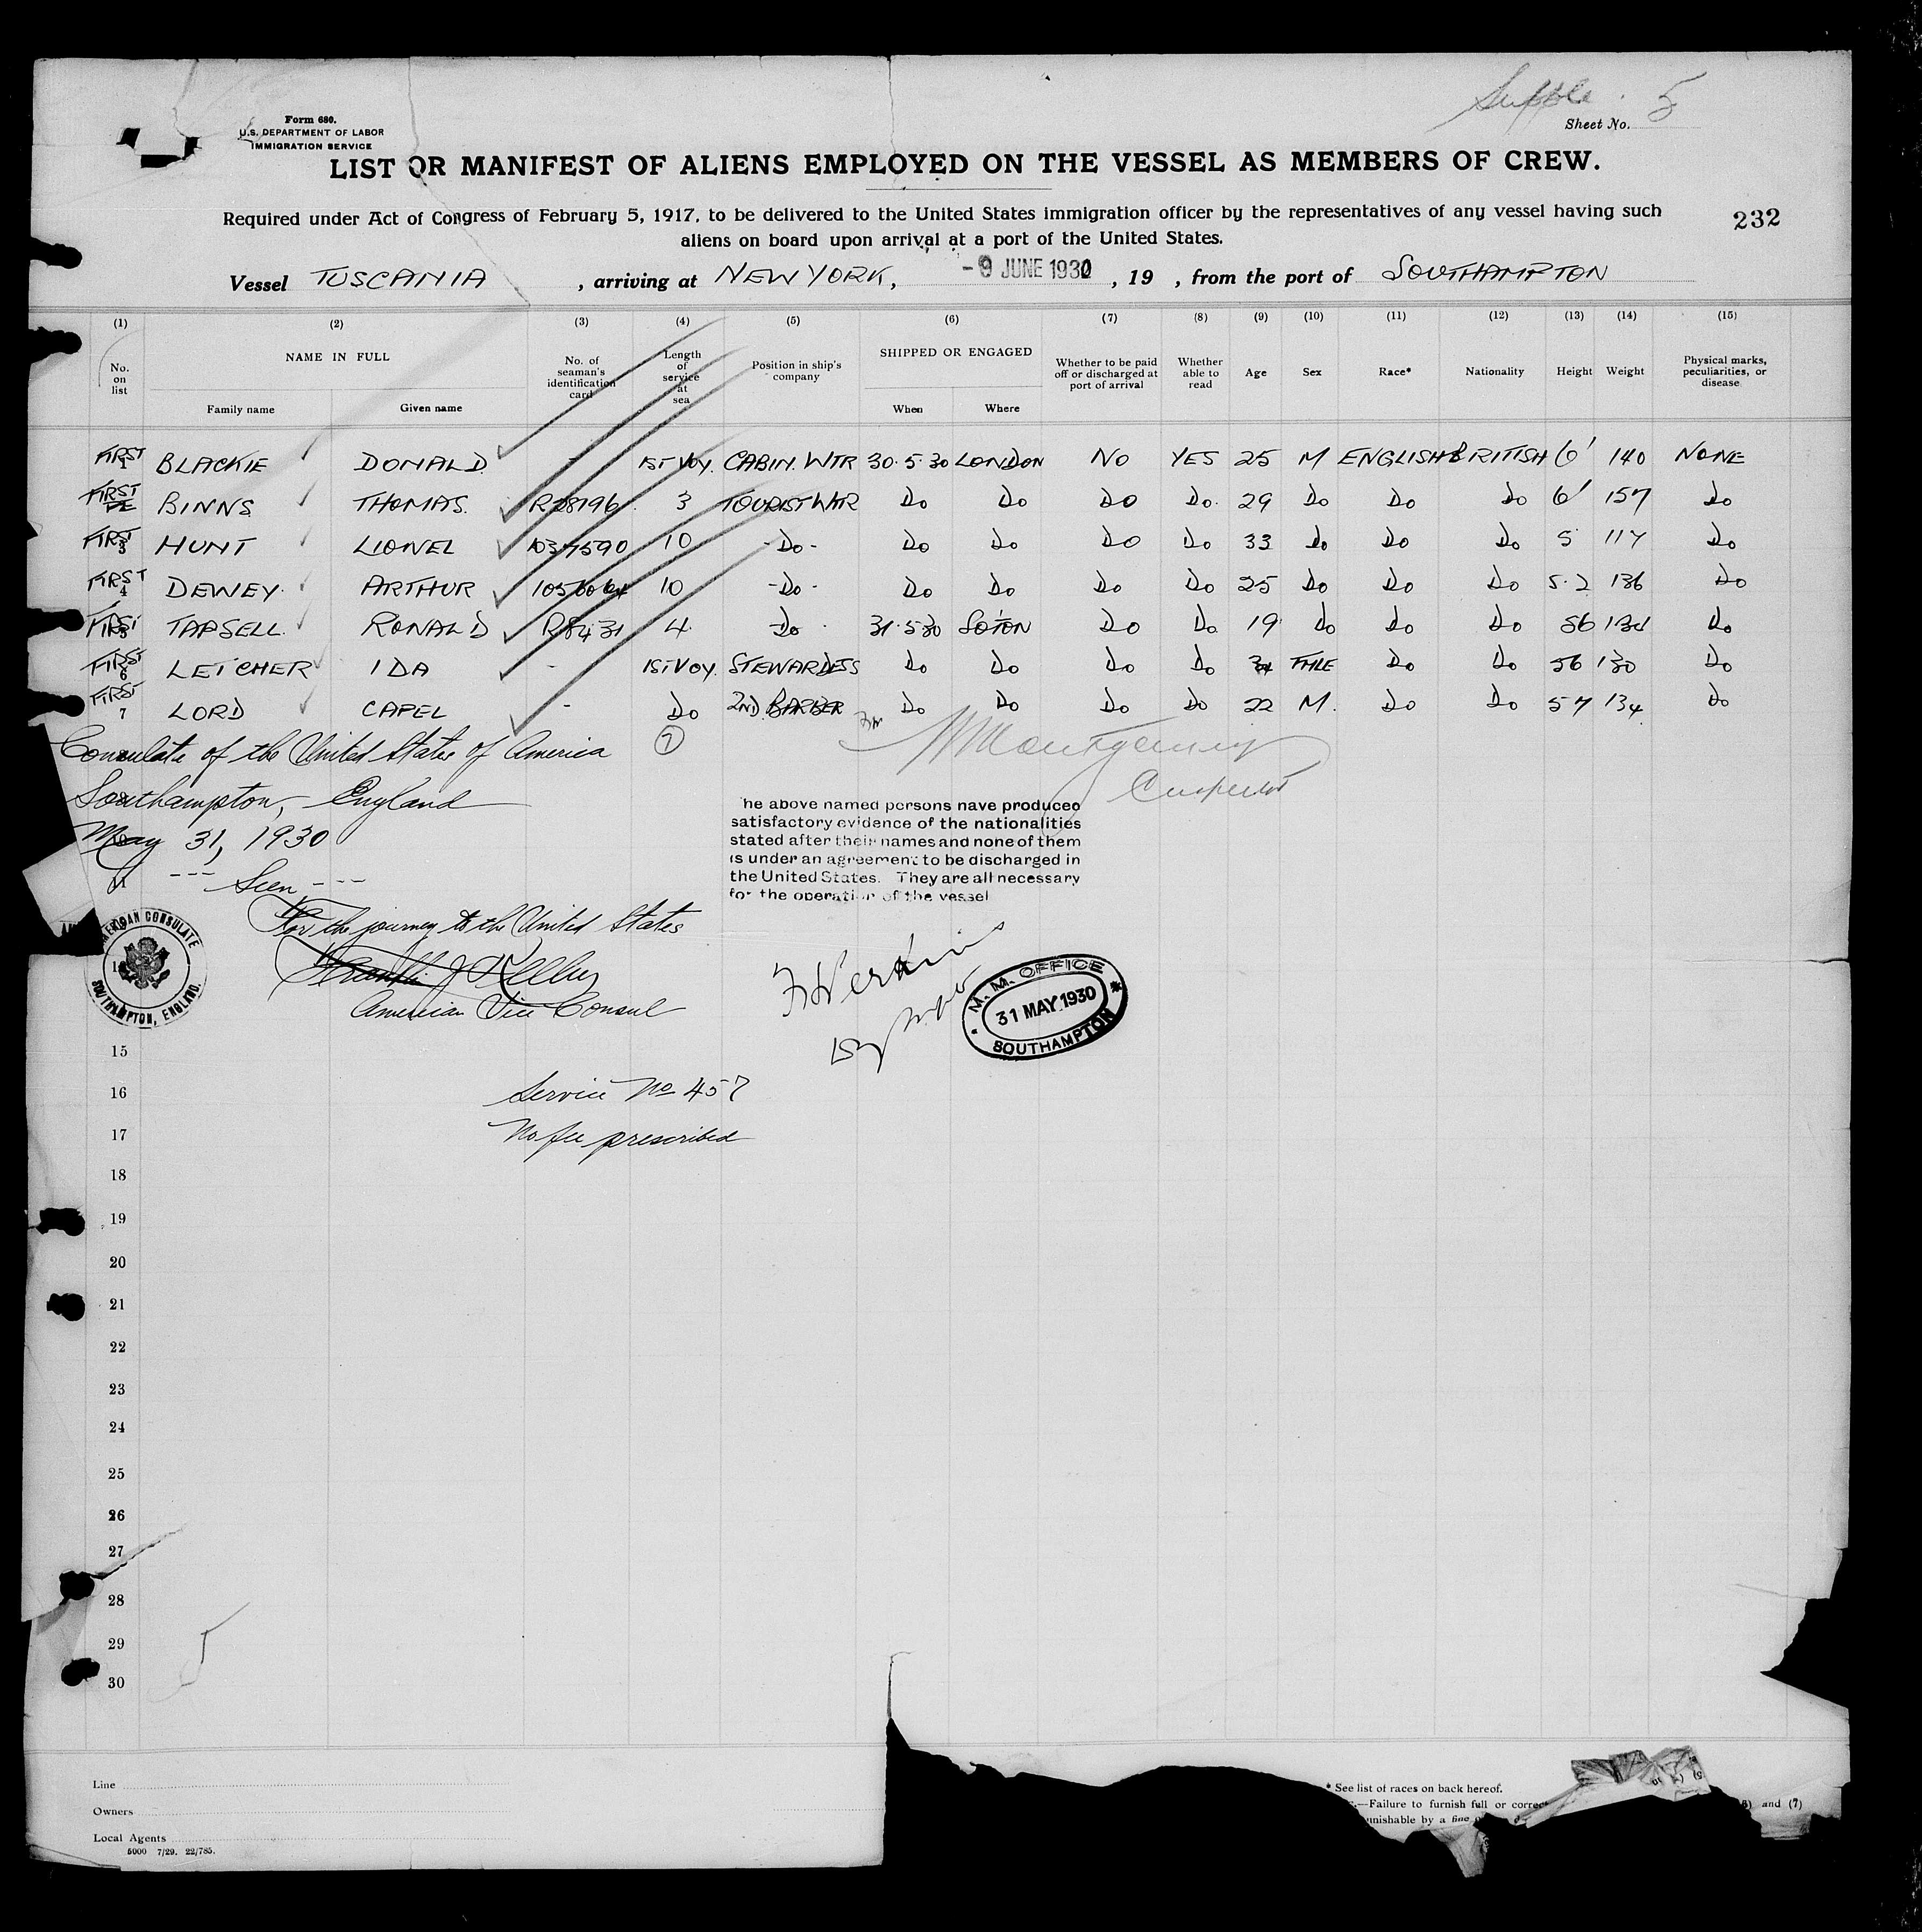 Supple. 5
Form 680.
U.S. DEPARTMENT OF LABOR
IMMIGRATION SERVICE
Sheet No.
LIST OR MANIFEST OF ALIENS EMPLOYED ON THE VESSEL AS MEMBERS OF CREW.
Required under Act of Congress of February 5, 1917, to be delivered to the United States immigration officer by the representatives of any vessel having such
aliens on board upon arrival at a port of the United States.
232
Vessel TUSCANIA , arriving at NEW YORK, -9 JUNE 1930 , 19 , from the port of SOUTHAMPTON
(1) (2) (3) (4) (5) (6) (7) (8) (9) (10) (11) (12) (13) (14) (15)
No. on list NAME IN FULL Family name Given name No. of seaman's identification card Length of service at sea Position in ship's company SHIPPED OR ENGAGED When Where Whether to be paid off or discharged at port of arrival Whether able to read Age Sex Race* Nationality Height Weight Physical marks, peculiarities, or disease
FIRST 1 BLACKIE DONALD. - 1ST VOY. CABIN. WTR 30.5.30 LONDON NO YES 25 M ENGLISH BRITISH 6' 140 NONE
FIRST BINNS THOMAS. R28196 3 TOURIST WTR Do Do Do Do. 29 Do Do Do 6' 157 Do
FIRST 3 HUNT LIONEL 1037590 10 -Do- Do Do Do Do 33 Do Do Do 5 117 Do
FIRST 4 DEWEY. ARTHUR 10 -Do- Do Do Do Do 25 Do Do Do 5.2 136 Do
FIRST 5 TAPSELL. RONALD 4. -Do- 31.5.30 SOTON Do Do 19 Do Do Do 56 Do
FIRST 6 LETCHER IDA - 1ST VOY. STEWARDESS Do Do Do Do Do Do 56 130 Do
FIRST 7 LORD CAPEL - Do 2ND BARBER Do Do Do Do 22 M. Do Do 57 134 Do
Consulate of the United States of America
7
Montgomery
Southampton, England
May 31, 1930
11 --- Seen ---
For the journey to the United States
American Vice Consul
AMERICAN CONSULATE
SOUTHAMPTON, ENGLAND.
he above named persons have produced
satisfactory evidence of the nationalities
stated after their names and none of them
is under an agreement to be discharged in
the United States. They are all necessary
for the operation of the vessel
M. M. OFFICE
31 MAY 1930
SOUTHAMPTON
15
16 Service No 457
17 No fee prescribed
18
19
20
21
22
23
24
25
26
27
28
29
30
Line
Owners
Local Agents
5000 7/29. 22/785.
* See list of races on back hereof.
—Failure to furnish full or correc
and (7)
unishable by a fine